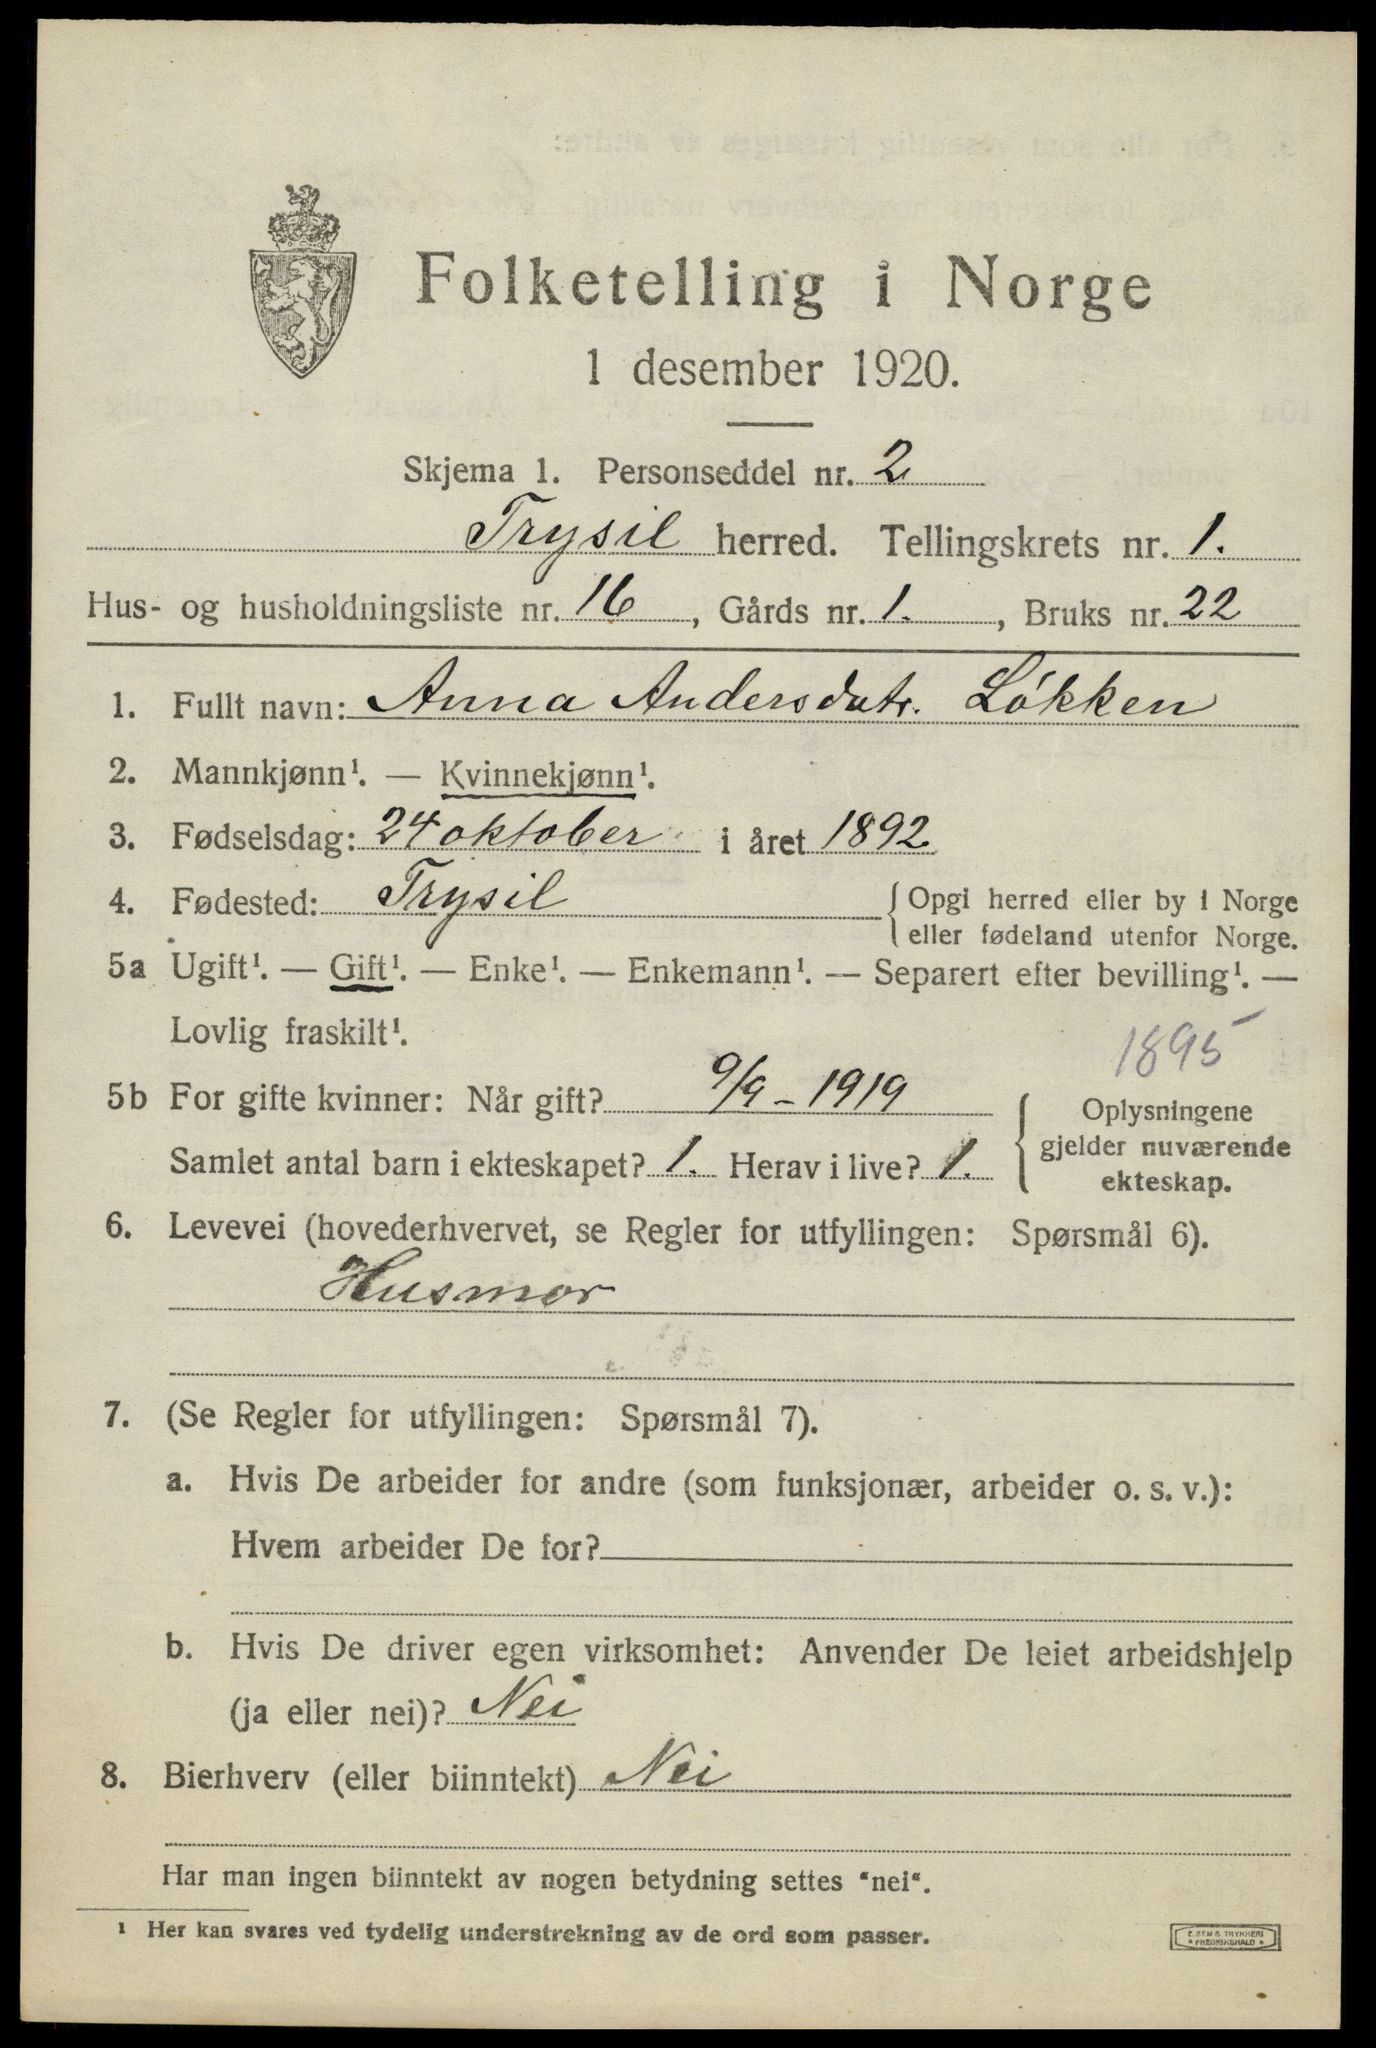 Folketelling i Norge
1 desember 1920.
Skjema 1. Personseddel nr. 2
Trysil herred. Tellingskrets nr. 1.
Hus- og husholdningsliste nr. 16, Gårds nr. 1., Bruks nr. 22
1. Fullt navn: Anna Andersdatr. Løkken
2. Mannkjønn¹. — Kvinnekjønn¹.
3. Fødselsdag: 24 oktober i året 1892
4. Fødested: Trysil { Opgi herred eller by i Norge
eller fødeland utenfor Norge.
5a Ugift¹. — Gift¹. — Enke¹. — Enkemann¹. — Separert efter bevilling¹. —
Lovlig fraskilt¹.
1895
5b For gifte kvinner: Når gift? 9/9 – 1919
Samlet antal barn i ekteskapet? 1. Herav i live? 1.
{ Oplysningene
gjelder nuværende
ekteskap.
6. Levevei (hovederhvervet, se Regler for utfyllingen: Spørsmål 6).
Husmor
7. (Se Regler for utfyllingen: Spørsmål 7).
a. Hvis De arbeider for andre (som funksjonær, arbeider o. s. v.):
Hvem arbeider De for?
b. Hvis De driver egen virksomhet: Anvender De leiet arbeidshjelp
(ja eller nei)? Nei
8. Bierhverv (eller biinntekt) Nei
Har man ingen biinntekt av nogen betydning settes "nei".
¹ Her kan svares ved tydelig understrekning av de ord som passer.
TRYKKERI
FREDRIKSHALD